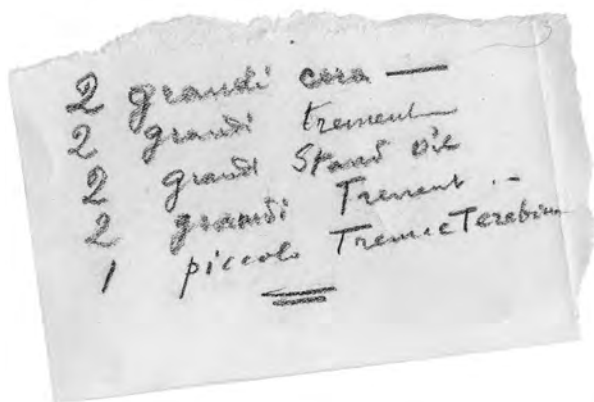 2 grandi cera —
2 grandi trement
2 grandi Stand oil
2 grandi Trement . -
1 piccolo Trem e Terebin